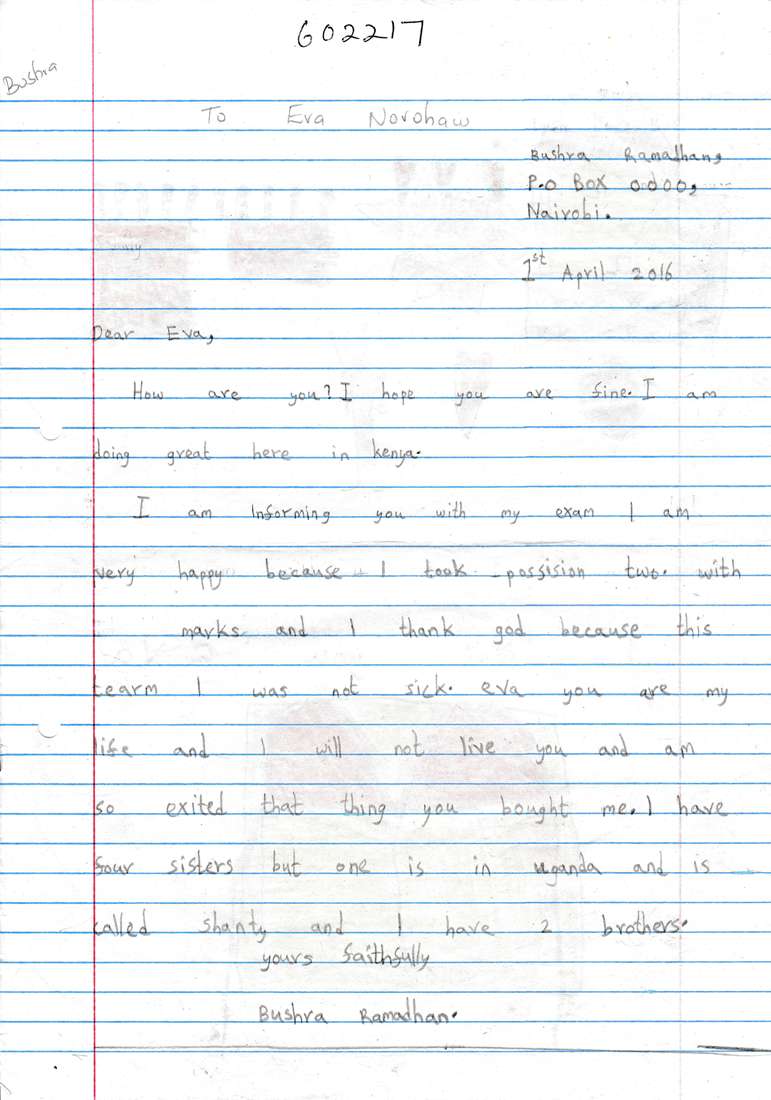 602217
Bushra
To Eva Norohaw
Bushra Ramadhan,
P.o Box 0d00,
Nairobi.
1st April 2016
Dear Eva,
How are you? I hope you are fine. I am
doing great here in kenya.
I am Informing you with my exam I am
very happy because I took possision two. with
marks and I thank god because this
tearm I was not sick. eva you are my
life and I will not live you and am
so exited that thing you bought me. I have
four sisters but one is in uganda and is
called shanty and I have 2 brothers.
yours faithfully
Bushra Ramadhan.